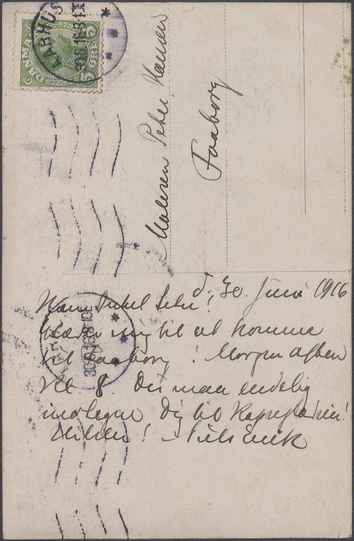 DANMARK
AARHUS
Maleren Peter Hansen
Faaborg
d. 30. Juni 1916
Kære Onkel Peter!
Glæder mig til at komme
til Faaborg! Morgen Aften
Kl. 8. Du maa endelig
indlogere Dig
Hilsen! Niels Erik